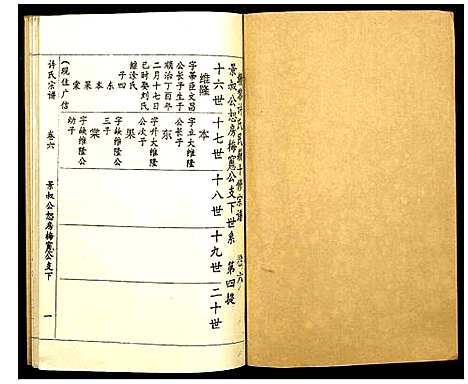 許氏民籍十修宗譜 卷六
景叔公恕房梅窻公支下世系 第四提
十六世 十七世 十八世 十九世 二十世
維隆
字蒂臣文昌
公長子生于
順治丁酉年
二月十七日
巳時娶刘氏
繼涂氏
子四
本
東
果
棠
(現住广信
本
字立大維隆
公長子
東
字升大維隆
公次子
果
字缺維隆公
棠
字缺維隆公
幼子
許氏宗譜
卷六
景叔公恕房梅窻公支下
一